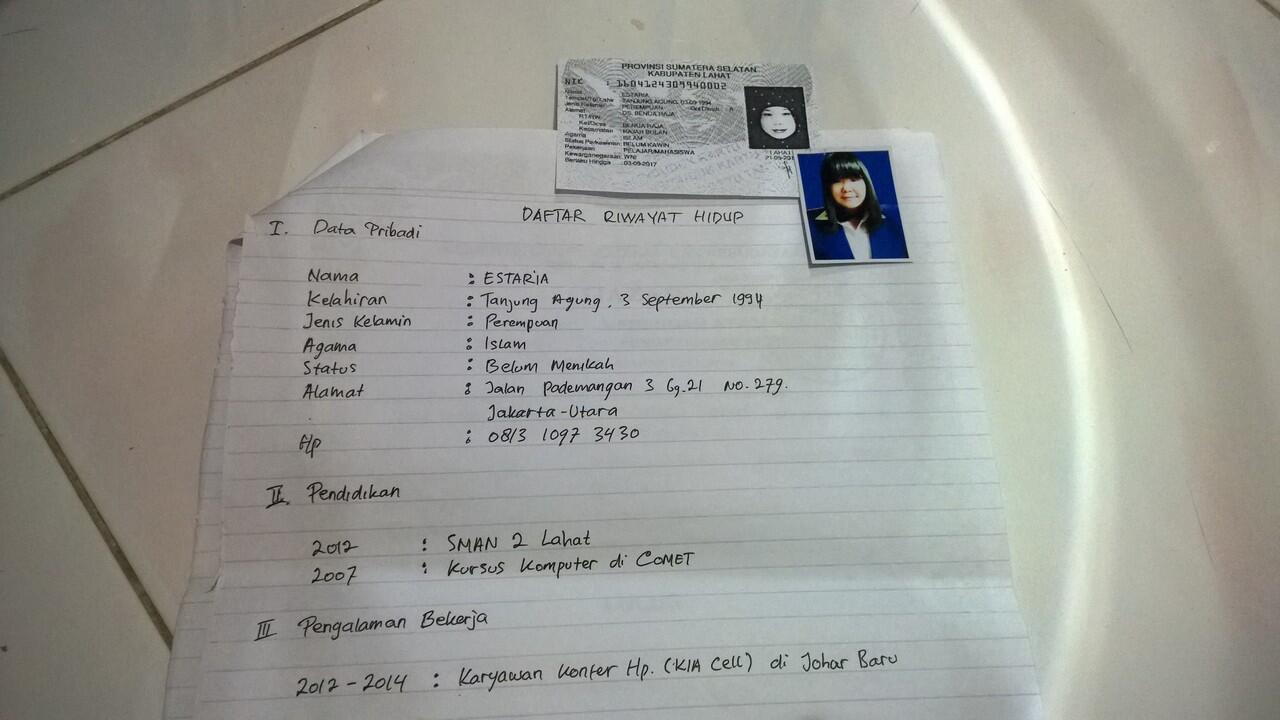 PROVINSI SUMATERA SELATAN
KABUPATEN LAHAT
NIK : 1604124309940002
Nama : ESTARIA
Tempat/Tgl Lahir : TANJUNG AGUNG, 03-09-1994
Jenis Kelamin : PEREMPUAN Gol Darah : A
Alamat : DS. BENUA RAJA
RT/RW
Kel/Desa : BENUA RAJA
Kecamatan
Agama : ISLAM
Status Perkawinan : BELUM KAWIN
Pekerjaan : PELAJAR/MAHASISWA
Kewarganegaraan : WNI
Berlaku Hingga : 03-09-2017
LAHAT
DAFTAR RIWAYAT HIDUP
I. Data Pribadi
Nama : ESTARIA
Kelahiran : Tanjung Agung, 3 September 1994
Jenis Kelamin : Perempuan
Agama : Islam
Status : Belum Menikah
Alamat : Jalan Pademangan 3 Gg.21 No.279.
Jakarta-Utara
Hp : 0813 1097 3430
II. Pendidikan
2012 : SMAN 2 Lahat
2007 : Kursus Komputer di COMET
III Pengalaman Bekerja
2012 - 2014 : Karyawan Konter Hp. (KIA Cell) di Johar Baru